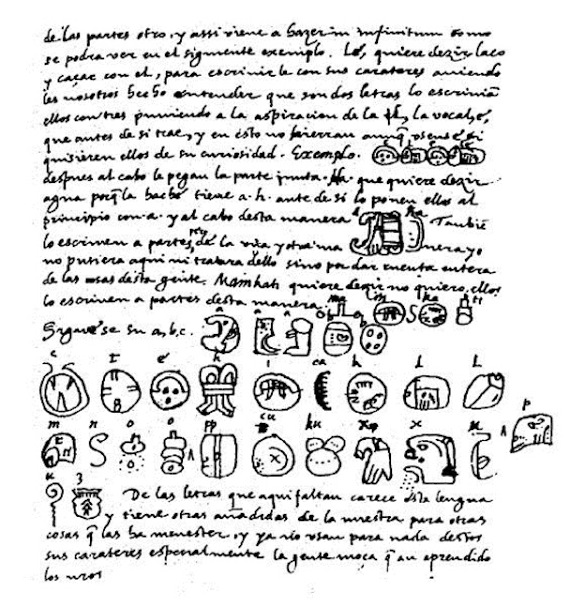 de las partes otro, y assi viene a hazer in infinitum como
se podra ver en el siguiente exemplo. Lé, quiere dezir laço
y caçar con el, para escrivirle con sus carateres aviendo
les nosotros hecho entender que son dos letras lo escrivian
ellos con tres puniendo a la aspiracion de la l, la vocal, é,
que antes de si trae, y en esto no hierran aunq̃ usense, si
quisieren ellos de su curiosidad. Exemplo.
despues al cabo le pegan la parte junta. Ha que quiere dezir
agua porq̃ la haché tiene a. h. ante de si lo ponen ellos al
principio con a. y al cabo desta manera a ha Tambiē
lo escriven a partes pero de la una y otra ma nera yo
no pusiera aqui ni tratara dello sino por dar cuenta entera
de las cosas desta gente. Mainkati quiere dezir no quiero, ellos
lo escriven a partes desta manera: ma i n ka ti
Siguese su a, b, c. a a a b b
c t é h i ca k l l
m n o o pp cu ku x x u p
u z De las letras que aqui faltan carece esta lengua
y tiene otras añadidas de la nuestra para otras
cosas q̃ las ha menester, y ya no usan para nada destos
sus carateres especialmente la gente moça q̃ an aprendido
los nros